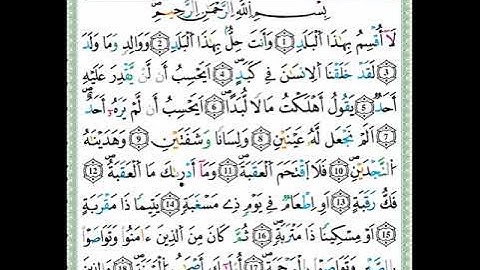 بِسْمِ اللَّهِ الرَّحْمَٰنِ الرَّحِيمِ
لَا أُقْسِمُ بِهَٰذَا الْبَلَدِ ۝١ وَأَنتَ حِلٌّ بِهَٰذَا الْبَلَدِ ۝٢ وَوَالِدٍ وَمَا وَلَدَ
۝٣ لَقَدْ خَلَقْنَا الْإِنسَانَ فِي كَبَدٍ ۝٤ أَيَحْسِبُ أَن لَّن يَقْدِرَ عَلَيْهِ
أَحَدٌ ۝٥ يَقُولُ أَهْلَكْتُ مَالًا لُّبَدًا ۝٦ أَيَحْسِبُ أَن لَّمْ يَرَهُ أَحَدٌ
۝٧ أَلَمْ نَجْعَل لَّهُ عَيْنَيْنِ ۝٨ وَلِسَانًا وَشَفَتَيْنِ ۝٩ وَهَدَيْنَاهُ
النَّجْدَيْنِ ۝١٠ فَلَا اقْتَحَمَ الْعَقَبَةَ ۝١١ وَمَا أَدْرَاكَ مَا الْعَقَبَةُ ۝١٢
فَكُّ رَقَبَةٍ ۝١٣ أَوْ إِطْعَامٌ فِي يَوْمٍ ذِي مَسْغَبَةٍ ۝١٤ يَتِيمًا ذَا مَقْرَبَةٍ
۝١٥ أَوْ مِسْكِينًا ذَا مَتْرَبَةٍ ۝١٦ ثُمَّ كَانَ مِنَ الَّذِينَ ءَامَنُوا وَتَوَاصَوْا
بِالصَّبْرِ وَتَوَاصَوْا بِالْمَرْحَمَةِ ۝١٧ أُولَٰئِكَ أَصْحَابُ الْمَيْمَنَةِ ۝١٨ وَالَّذِينَ